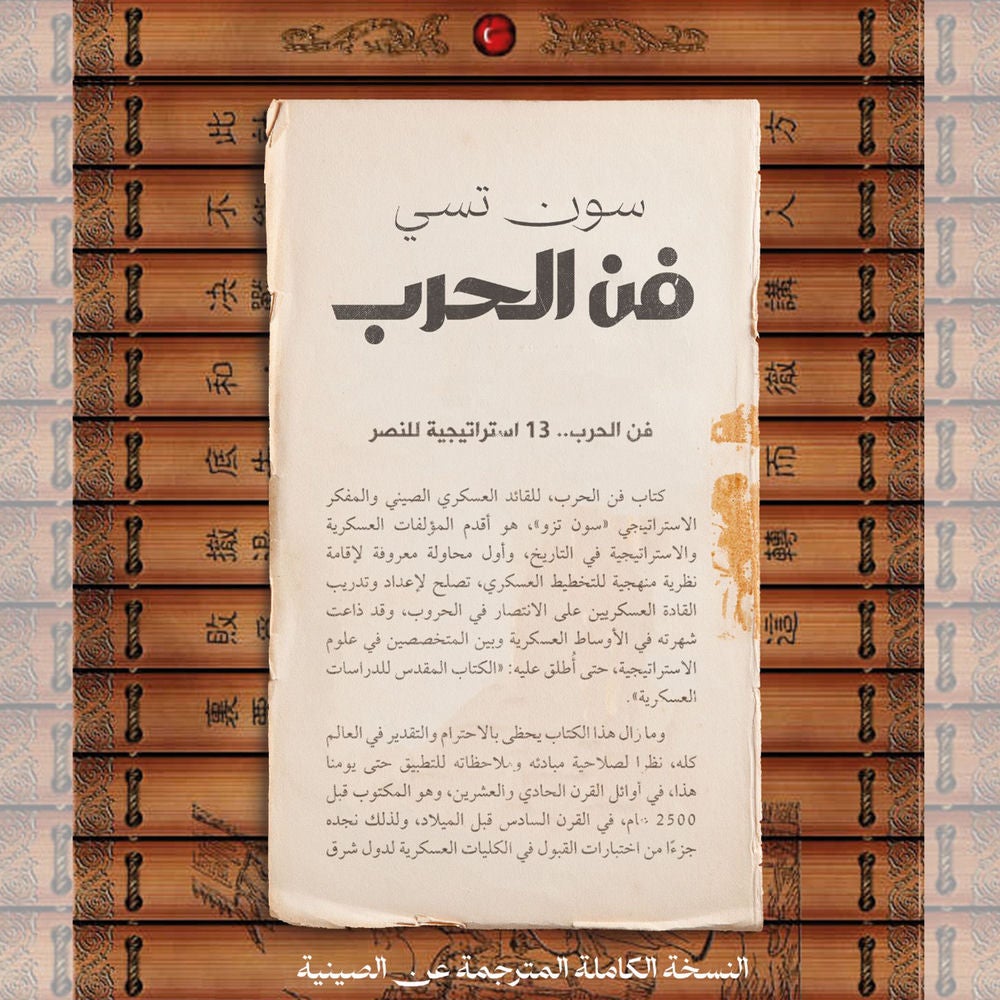 سون تسي
فن الحرب
فن الحرب.. 13 استراتيجية للنصر
كتاب فن الحرب، للقائد العسكري الصيني والمفكر
الاستراتيجي «سون تزو»، هو أقدم المؤلفات العسكرية
والاستراتيجية في التاريخ، وأول محاولة معروفة لإقامة
نظرية منهجية للتخطيط العسكري، تصلح لإعداد وتدريب
القادة العسكريين على الانتصار في الحروب، وقد ذاعت
شهرته في الأوساط العسكرية وبين المتخصصين في علوم
الاستراتيجية، حتى أُطلق عليه: «الكتاب المقدس للدراسات
العسكرية».
وما زال هذا الكتاب يحظى بالاحترام والتقدير في العالم
كله، نظرا لصلاحية مبادئه وملاحظاته للتطبيق حتى يومنا
هذا، في أوائل القرن الحادي والعشرين، وهو المكتوب قبل
2500 عام، في القرن السادس قبل الميلاد، ولذلك نجده
جزءًا من اختبارات القبول في الكليات العسكرية لدول شرق
النسخة الكاملة المترجمة عن الصينية
此
方
不
人
决
講
和
徹
底
而
撤
轉
敗
這
裏